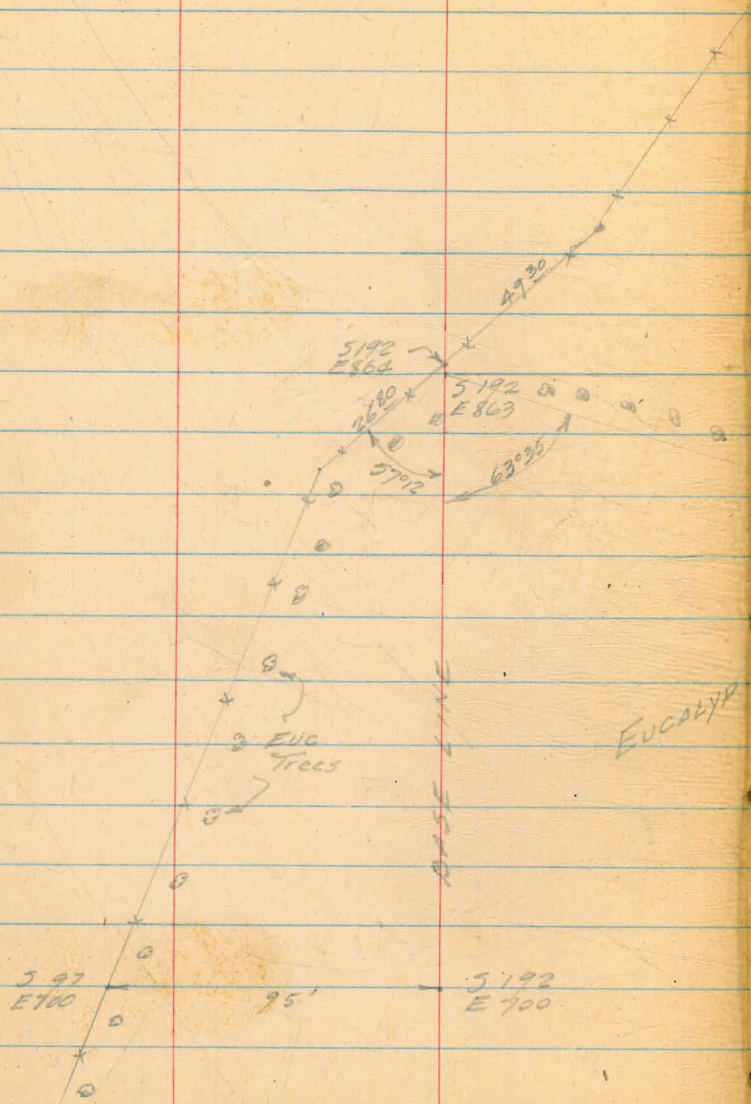 49 30
S192
E864
26 80
S 192
E 863
57°12
63°35
EUC
Trees
BASE LINE
EUCALYP
S 97
E700
95'
S 192
E 700